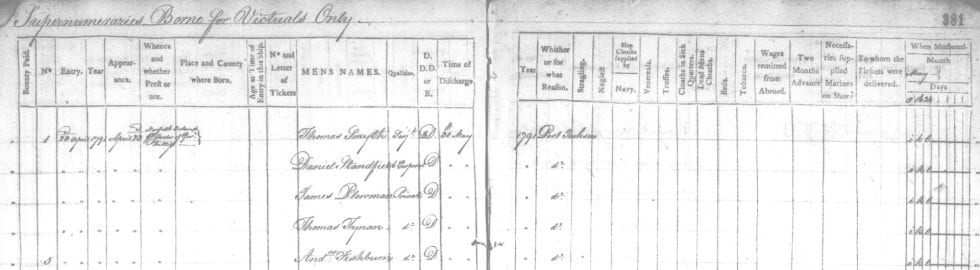 Supernumeraries Borne for Victuals Only
381
Bounty Paid. Nº Entry. Year Appear-ance. Whence and whether Prest or not. Place and County where Born. Age at Time of Entry in this Ship. Nº and Letter of Tickets MENS NAMES. Qualities. D. D.D. or R. Time of Discharge. Year Whither or for what Reason. Stragling. Neglect Slop Cloaths supplied by Navy. Venereals. Trusses. Cloaths in Sick Quarters. Dead Mens Cloaths. Beds. Tobacco. Wages remitted from Abroad. Two Months Advance Necessa-ries supplied Marines on Shore? To whom the Tickets were delivered. When Mustered. Month May Days
1 April 1791 April Norfolk Island Thomas Smyth D 30 May 1791 Port Jackson
Daniel Standfield D do
James Plowman Private D do
Thomas Tynan do D do
5 Andw Fishburn do D do